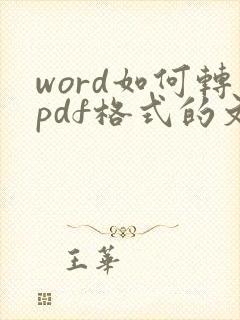 word如何轉
pdf格式的文
王華